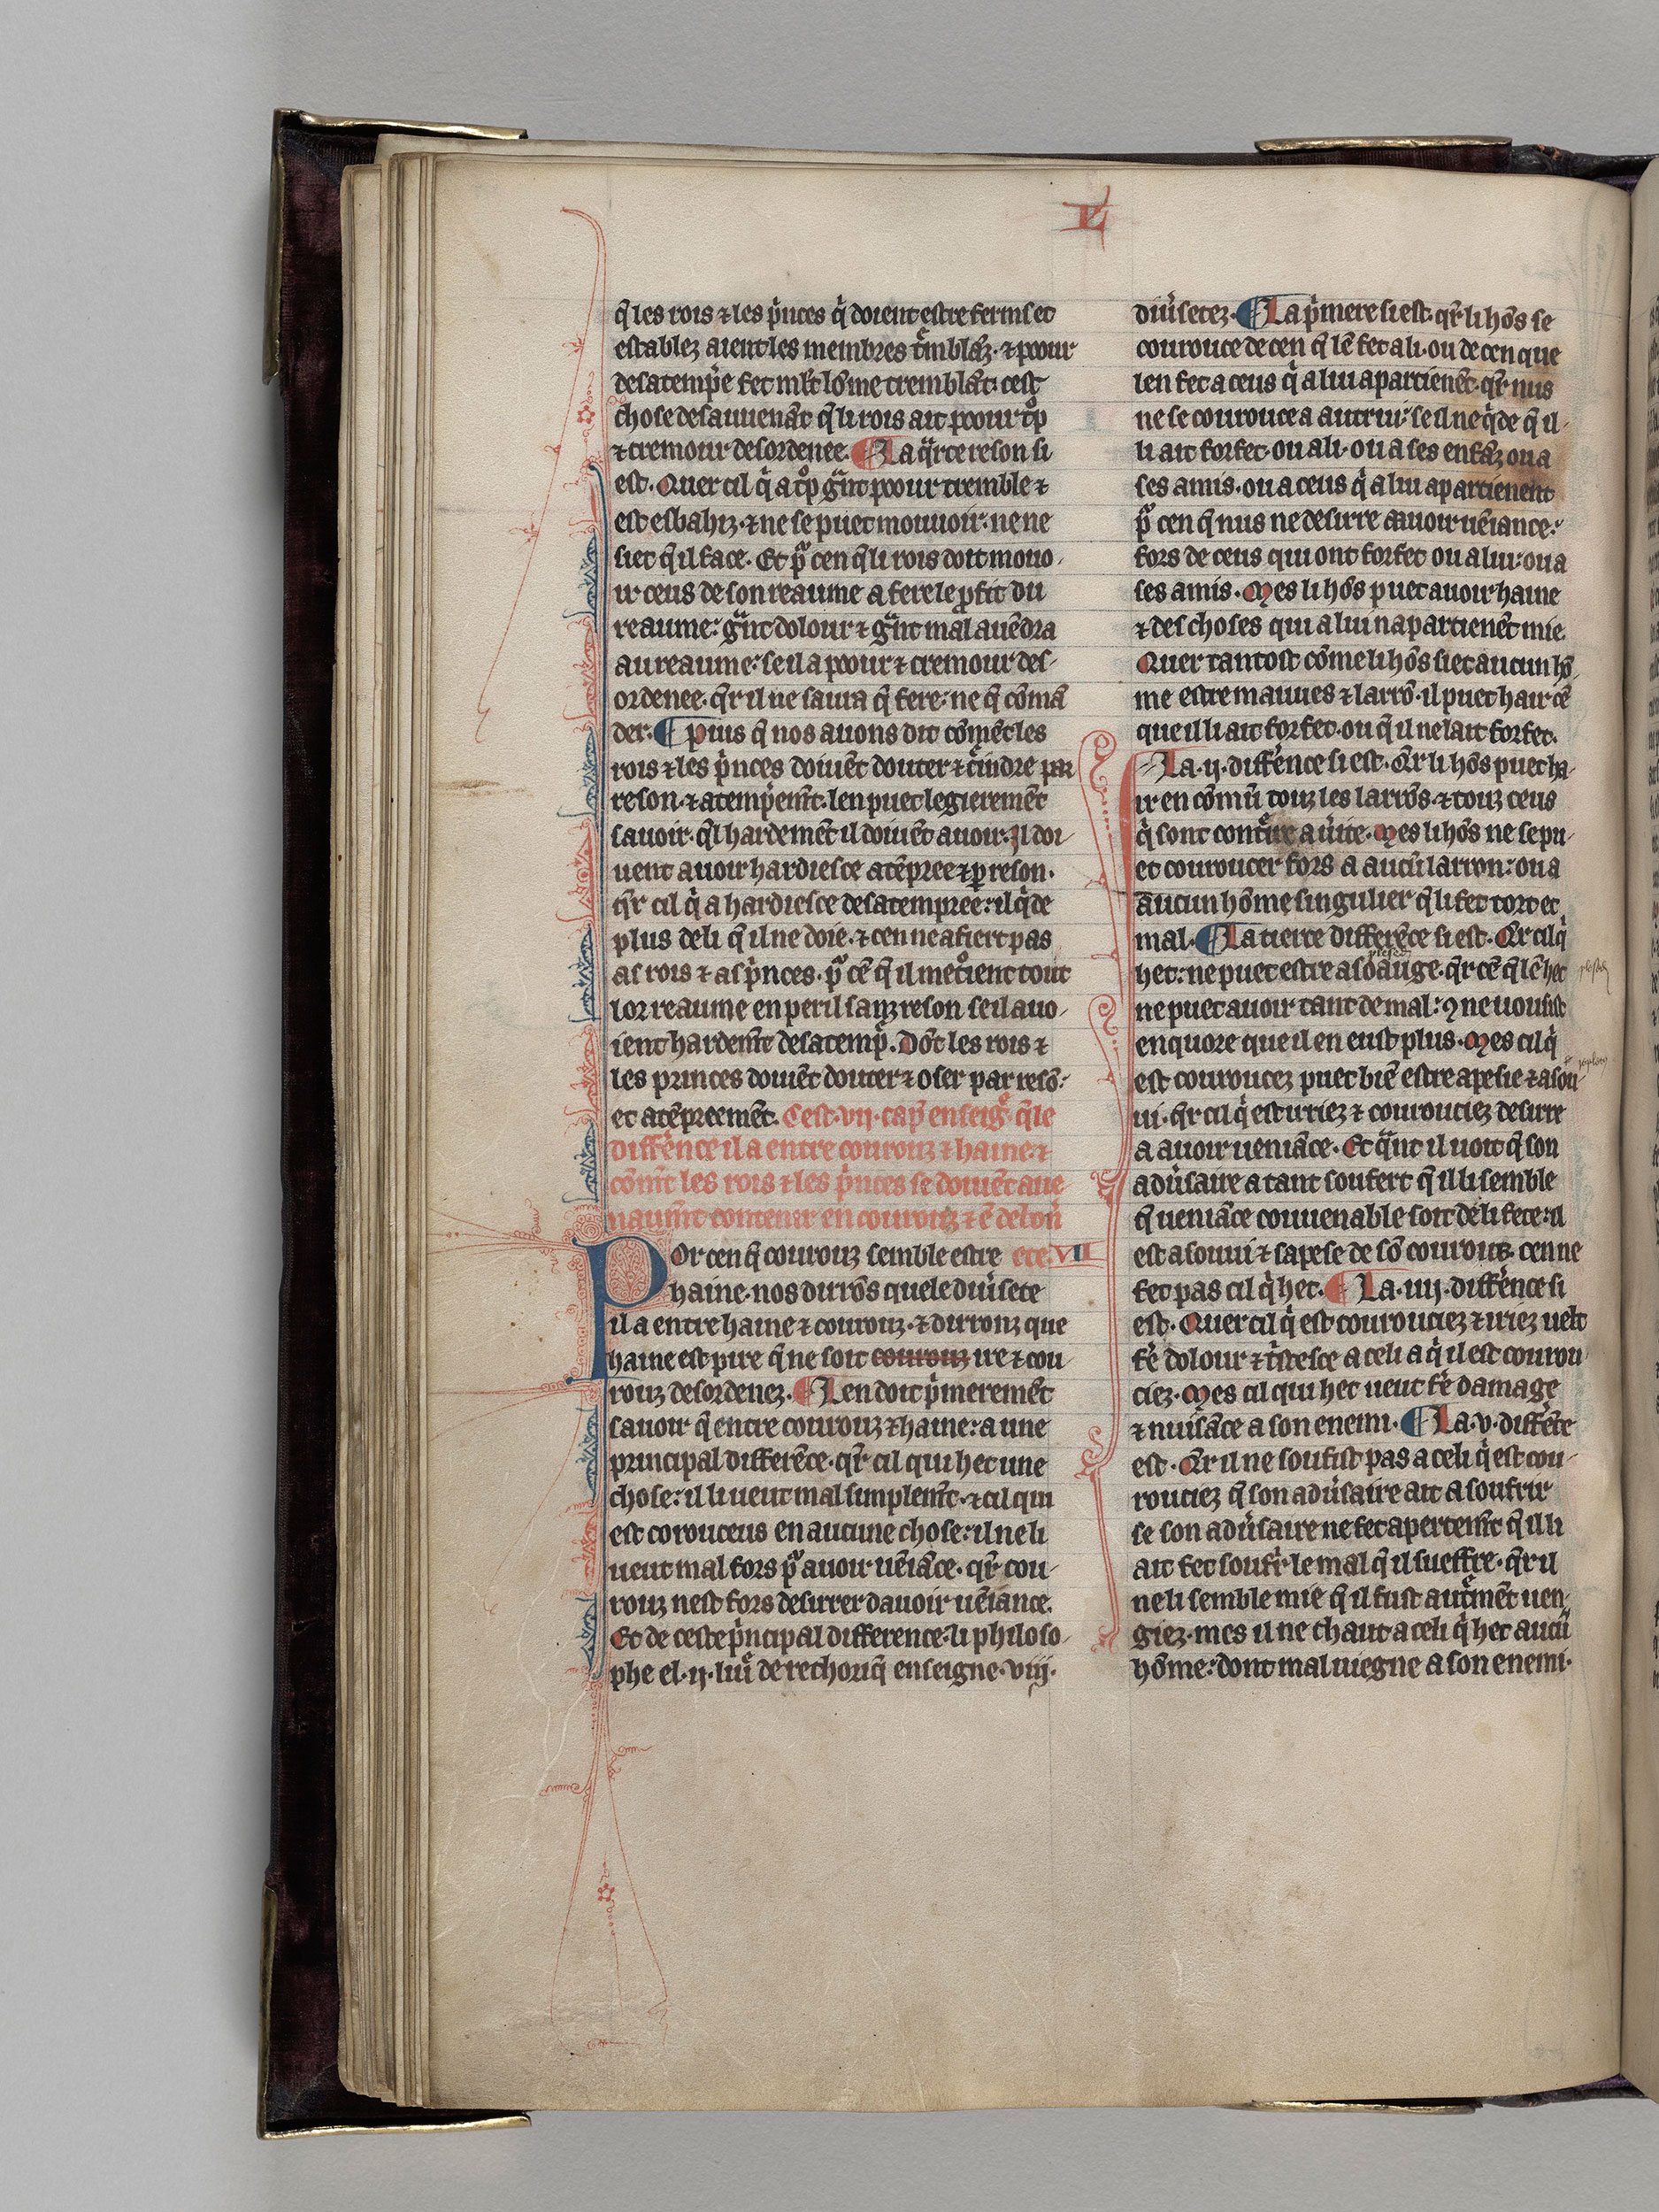 L
q̃ les rois ⁊ les p̃nces q̃ doient estre ferms et
establez aient les membres t̃mblãz · ⁊ poour
desatemp̃e fet ml̃t lõme tremblãt · cest
chose desauuenãt q̃ li rois ait poour t̊p
⁊ tremour desordenee · ¶ La q̃rte reson si
est · Quer cil q̃ a t̊p g̃nt poour tremble ⁊
est esbahiz · ⁊ ne se puet mouuoir : ne ne
siet q̃ il face · Et p̃ cen q̃ li rois doit mouo-
ir ceus de son reaume a fere le ꝓfit du
reaume : g̃nt dolour ⁊ g̃nt mal auẽdra
au reaume : se il a poour ⁊ cremour des-
ordenee · q̃r il ne saura q̃ fere : ne q̃ cõmã
der · ¶ Puis q̃ nos auons dit cõmẽt les
rois ⁊ les p̃nces doiuẽt douter ⁊ c̃indre par
reson · ⁊ atemp̃emt̃ · len puet legieremẽt
sauoir · q̃l hardemẽt il doiuẽt auoir · Il doi-
uent auoir hardiesce atẽpree ⁊ ꝑ reson ·
q̃r cil q̃ a hardiesce desatempree : il q̃de
plus de li q̃ il ne doie · ⁊ cen ne afiert pas
as rois ⁊ as p̃nces · p̃ cẽ q̃ il met̊ient tout
lor reaume en peril sanz reson se il auo-
ient hardemt̃ desatemp̃ · Dõt les rois ⁊
les princes doiuẽt douter ⁊ oser par resõ :
et atẽpreemẽt · Cest · vij · cap̃ enseig̃ q̃le
diffẽnce il a entre courouz ⁊ haine · ⁊
cõmt̃ les rois ⁊ les p̃nces se doiuẽt aue
naumt̃ contenir en courouz ⁊ ẽ debon
Por cen q̃ courouz semble estre ete · VII
haine · nos dirrõs quele diũsete
il a entre haine ⁊ courouz · ⁊ dirronz que
haine est pire q̃ ne soit courouz ire ⁊ cou
rouz desordenez · ¶ Len doit p̃meremẽt
sauoir q̃ entre courouz ⁊ haine : a une
principal differẽce · q̃r cil qui het une
chose : il li ueut mal simplemt̃ · ⁊ cil qui
est corouceus en aucune chose : il ne li
ueut mal fors p̃ auoir uẽiãce · q̃r cou-
rouz nest fors desirrer dauoir uẽiance ·
Et de ceste p̃ncipal difference · li philoso-
phe el · ij · liũ de rethoriq̃ enseigne · viij ·
diũsetez · ¶ La p̃mere si est · q̃r li hõs se
courouce de cen q̃ lẽ fet a li · ou de cen que
len fet a ceus q̃ a lui apartienẽt · q̃r nus
ne se courouce a autrui : se il ne q̃de q̃ il-
li ait forfet · ou a li · ou a ses enfãz ou a
ses amis · ou a ceus q̃ a lui apartienent
p̃ cen q̃ nus ne desirre auoir uẽiance :
fors de ceus qui ont forfet ou a lui : ou a
ses amis · Mes li hõs puet auoir haine
⁊ des choses qui a lui napartienẽt mie ·
Quer tantost cõme li hõs siet aucun hõ-
me estre mauues ⁊ larrõ · il puet hair cẽ
que il li ait forfet · ou q̃ il ne lait forfet ·
La · ij · diffẽnce si est · Q̃r li hõs puet ha-
ir en cõmũ touz les larrõs · ⁊ touz ceus
q̃ sont cont̃ire a ũite · Mes li hõs ne se pu-
et couroucer fors a aucũ larron : ou a
aucun hõme singulier q̃ li fet tort et
mal · ¶ La tierce differẽce si est · Q̃r cil q̃
het : ne puet estre asoãuge · q̃r cẽ q̃ lẽ het
ne puet auoir tant de mal : q̃ ne uousist
enquore que il en eust plus · Mes cil q̃
est couroucez puet biẽ estre apesie ⁊ asou
ui · q̃r cil q̃ est iriez ⁊ courouciez desirre
a auoir ueniãce · Et q̃nt il uoit q̃ son
adũsaire a tant soufert q̃ il li semble
q̃ ueniãce couuenable soit de li fete : il
est asouui ⁊ sapese de sõ courouz · cen ne
fet pas cil q̃ het · ¶ La · iiij · diffẽnce si
est · Quer cil q̃ est courouciez ⁊ iriez uelt
fẽ dolour ⁊ t̃stesce a celi a q̃ il est courou
ciez · Mes cil qui het ueut fẽ damage
⁊ nuisãce a son enemi · ¶ La · v · diffẽce
est · Q̃r il ne soufist pas a celi q̃ est cou-
rouciez q̃ son adũsaire ait a soufrir
se son adũsaire ne fet apertemt̃ q̃ il li
ait fet soufr̃ · le mal q̃ il sueffre · q̃r il
ne li semble mie q̃ il fust aut̃mẽt uen-
giez · mes il ne chaut a celi q̃ het aucũ
hõme : dont mal uiegne a son enemi ·